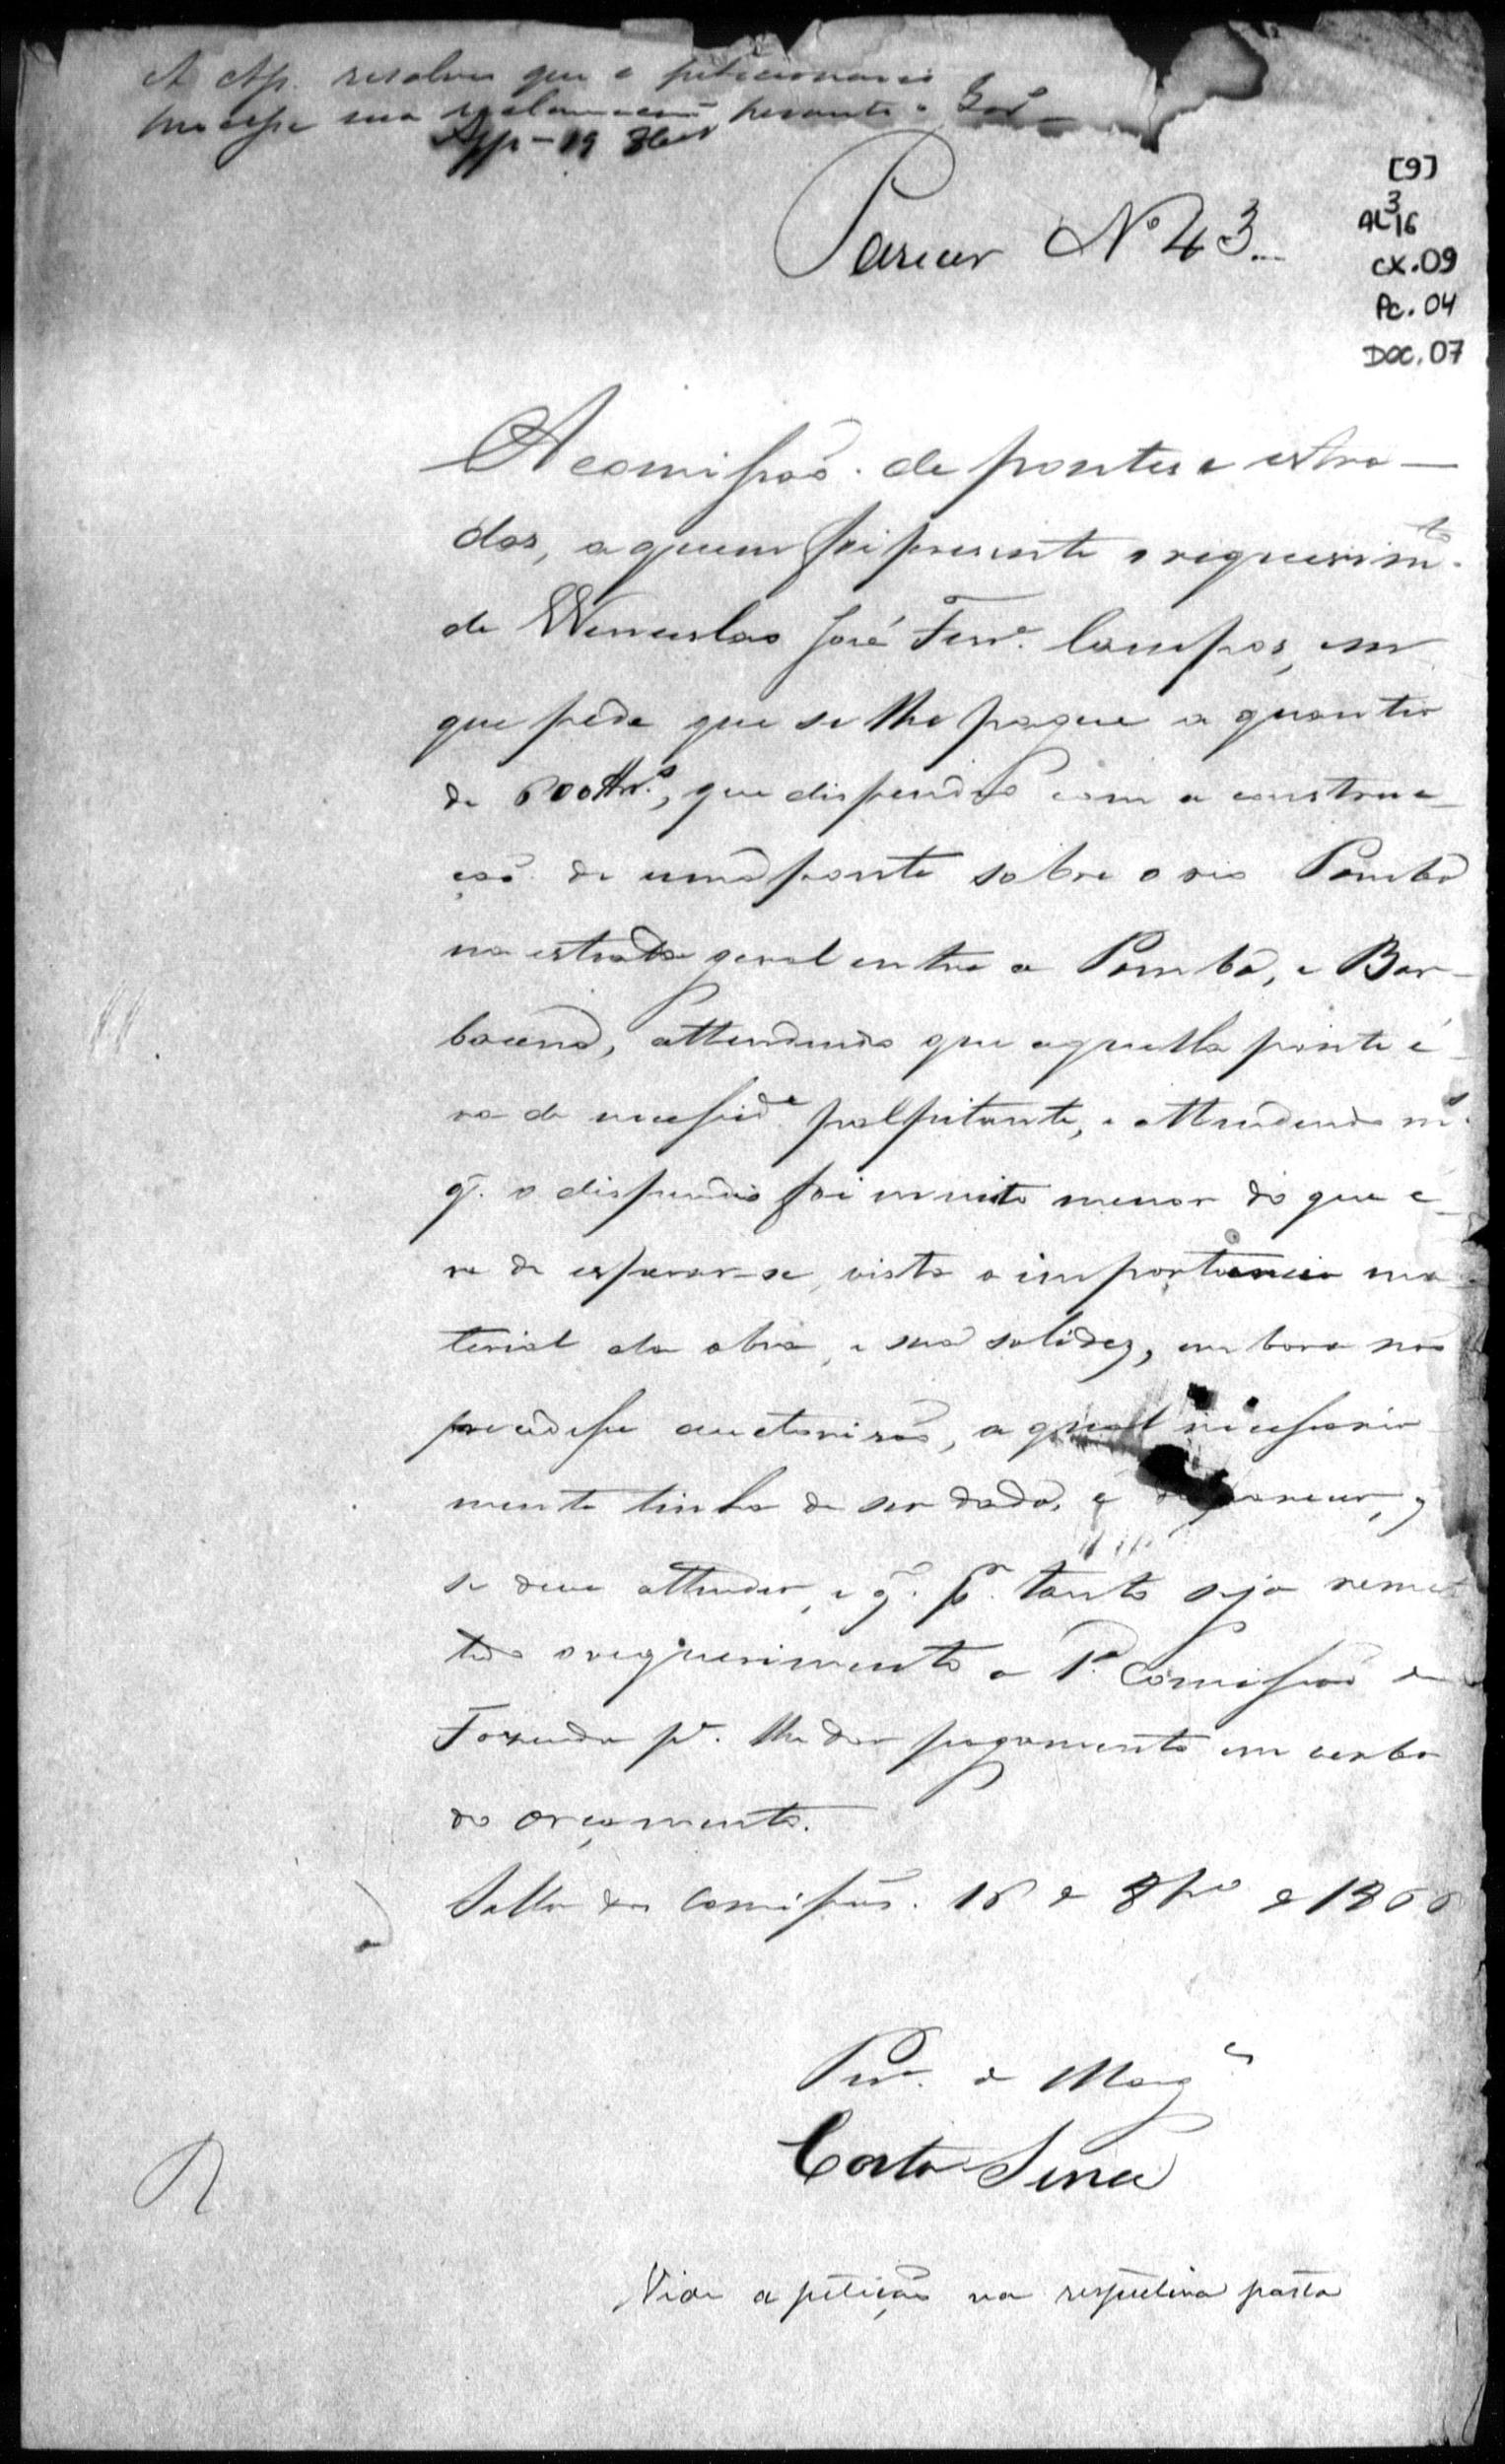 A Ap. resolveu que o peticionario
sua reclamação perante o Gov.º
App - 19 8br.º
Parecer Nº 43
[9]
AL 3/16
CX.09
Pc. 04
DOC. 07
A comissão de pontes e estra-
das, a quem foi presente o requerim.to
de Wenceslao José Ferr.ª Campos, em
que pede que se lhe pague a quantia
de 600$rs., que dispendeo com a construc-
ção de uma ponte sobre o rio Pomba
na estrada geral entre a Pomba, e Bar-
bacena, attendendo que aquella ponte é-
ra de necessid.e palpitante, e attendendo m.s
q. o dispendio foi muito menor do que e-
ra de esperar-se, vista a importancia ma-
terial da obra, e sua solidez, embora não
precedesse auctorisão, a qual necessaria
mente tinha de ser dada, é de parecer, q
se deve attender, e q. p.r tanto seja remet
tido o requerimento a 1ª Comissão de
Fazenda p.ª lhe dar pagamento em verba
do orçamento.
Salla das Comissões. 16 de 8br.o de 1866
Per.ª de Mag.es
Costa Sena
Vide a petição na respectiva pasta